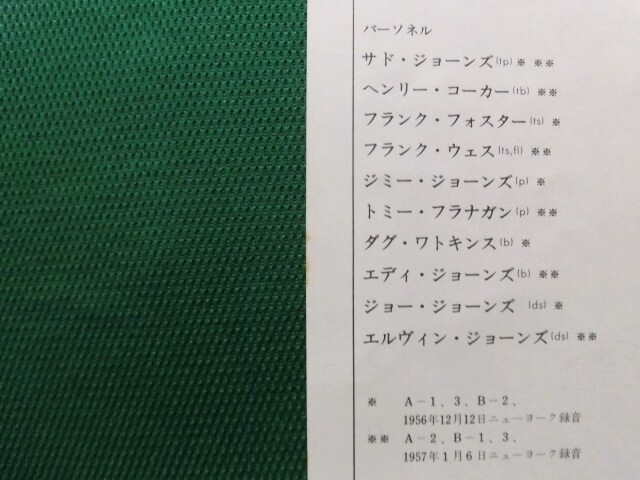 パーソネル
サド・ジョーンズ(tp) ※ ※※
ヘンリー・コーカー(tb) ※※
フランク・フォスター(ts) ※
フランク・ウェス(ts,fl) ※※
ジミー・ジョーンズ(p) ※
トミー・フラナガン(p) ※※
ダグ・ワトキンス(b) ※
エディ・ジョーンズ(b) ※※
ジョー・ジョーンズ (ds) ※
エルヴィン・ジョーンズ(ds) ※※
※ A-1、3、B-2、
1956年12月12日ニューヨーク録音
※※ A-2、B-1、3、
1957年1月6日ニューヨーク録音